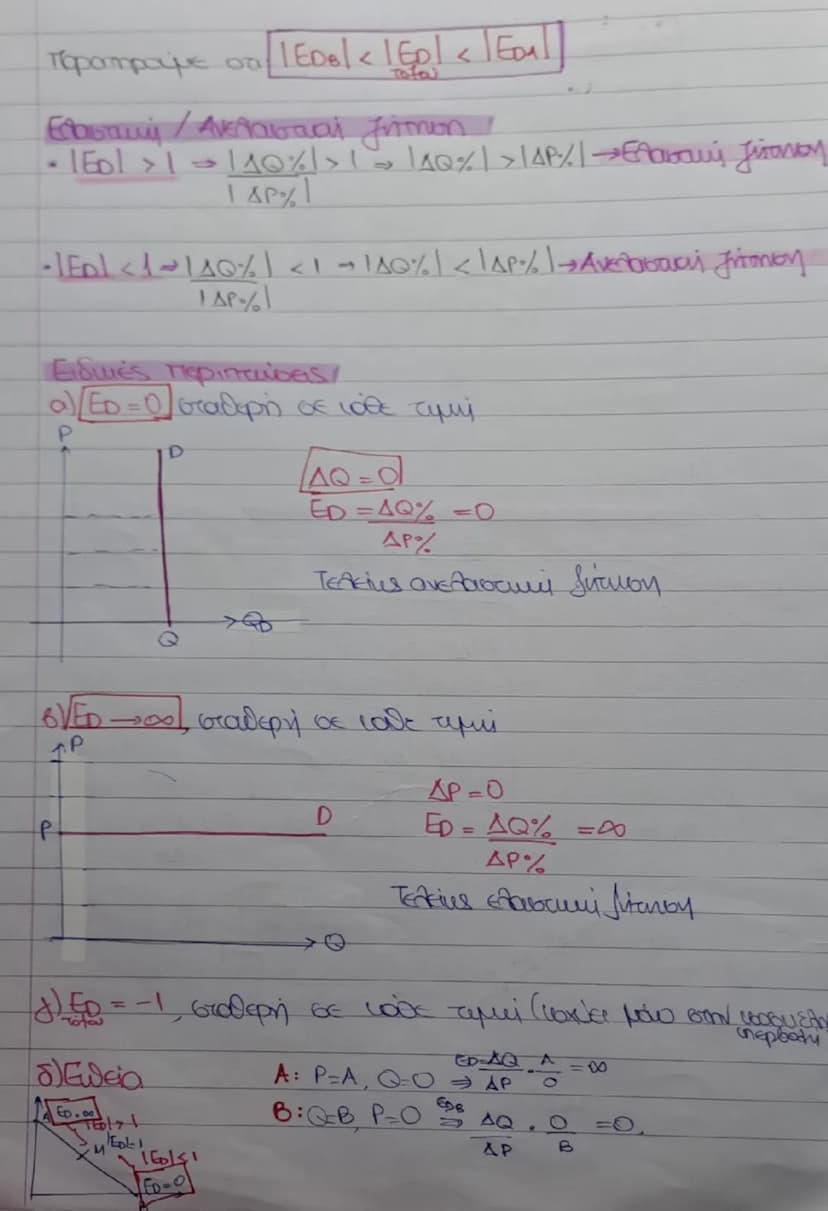 Παρατηρούμε ότι |EDB| < |ED| < |EDA|
τόξου
Ελαστική / Ανελαστική ζήτηση
• |ED| > 1 → |ΔQ%| > 1 → |ΔQ%| > |ΔP%| → Ελαστική ζήτηση
|ΔP%|
• |ED| < 1 → |ΔQ%| < 1 → |ΔQ%| < |ΔP%| → Ανελαστική ζήτηση
|ΔP%|
Ειδικές περιπτώσεις
α) ED = 0 σταθερή σε κάθε τιμή
P
D
ΔQ = 0
ED = ΔQ% = 0
ΔP%
Τελείως ανελαστική ζήτηση
QD
Q
β) ED → ∞, σταθερή σε κάθε τιμή
P
ΔP = 0
P
D
ED = ΔQ% = ∞
ΔP%
Τελείως ελαστική ζήτηση
Q
γ) ED = -1, σταθερή σε κάθε τιμή (ισχύει μόνο στην ισοσκελή
τόξου
υπερβολή
δ) Ευθεία
A: P=A, Q=0 ⇒ ED=ΔQ/ΔP · A/0 = ∞
B: Q=B, P=0 EDB ⇒ ΔQ/ΔP · 0/B = 0.
A ED=∞
|ED|>1
M |ED|=1
|ED|<1
ED=0